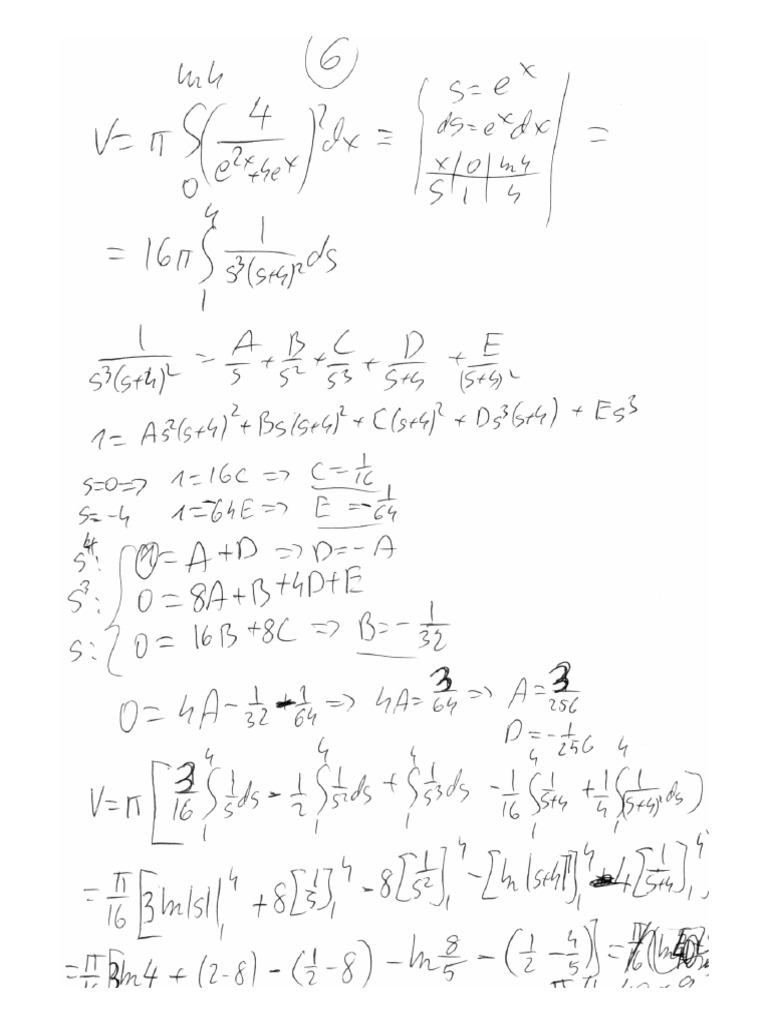 6
V = π ∫₀^{ln4} (4/(e^{2x}+4e^x))² dx = | s = e^x
ds = e^x dx
x | 0 | ln4
s | 1 | 4 | =
= 16π ∫₁⁴ 1/(s³(s+4)²) ds
1/(s³(s+4)²) = A/s + B/s² + C/s³ + D/(s+4) + E/(s+4)²
1 = As²(s+4)² + Bs(s+4)² + C(s+4)² + Ds³(s+4) + Es³
s=0 => 1 = 16C => C = 1/16
s=-4 1 = -64E => E = -1/64
s⁴: 0 = A + D => D = -A
s³: 0 = 8A + B + 4D + E
s: 0 = 16B + 8C => B = -1/32
0 = 4A - 1/32 - 1/64 => 4A = 3/64 => A = 3/256
D = -1/256
V = π [ 3/16 ∫₁⁴ 1/s ds - 1/2 ∫₁⁴ 1/s² ds + ∫₁⁴ 1/s³ ds - 1/16 ∫₁⁴ 1/(s+4) + 1/4 ∫₁⁴ 1/(s+4)² ds )
= π/16 [ 3 ln|s| |₁⁴ + 8[1/s]₁⁴ - 8[1/s²]₁⁴ - [ln|s+4|]₁⁴ 4[1/(s+4)]₁⁴
= π/16 [ 3 ln4 + (2-8) - (1/2 - 8) - ln 8/5 - (1/2 - 4/5) ] = π/16